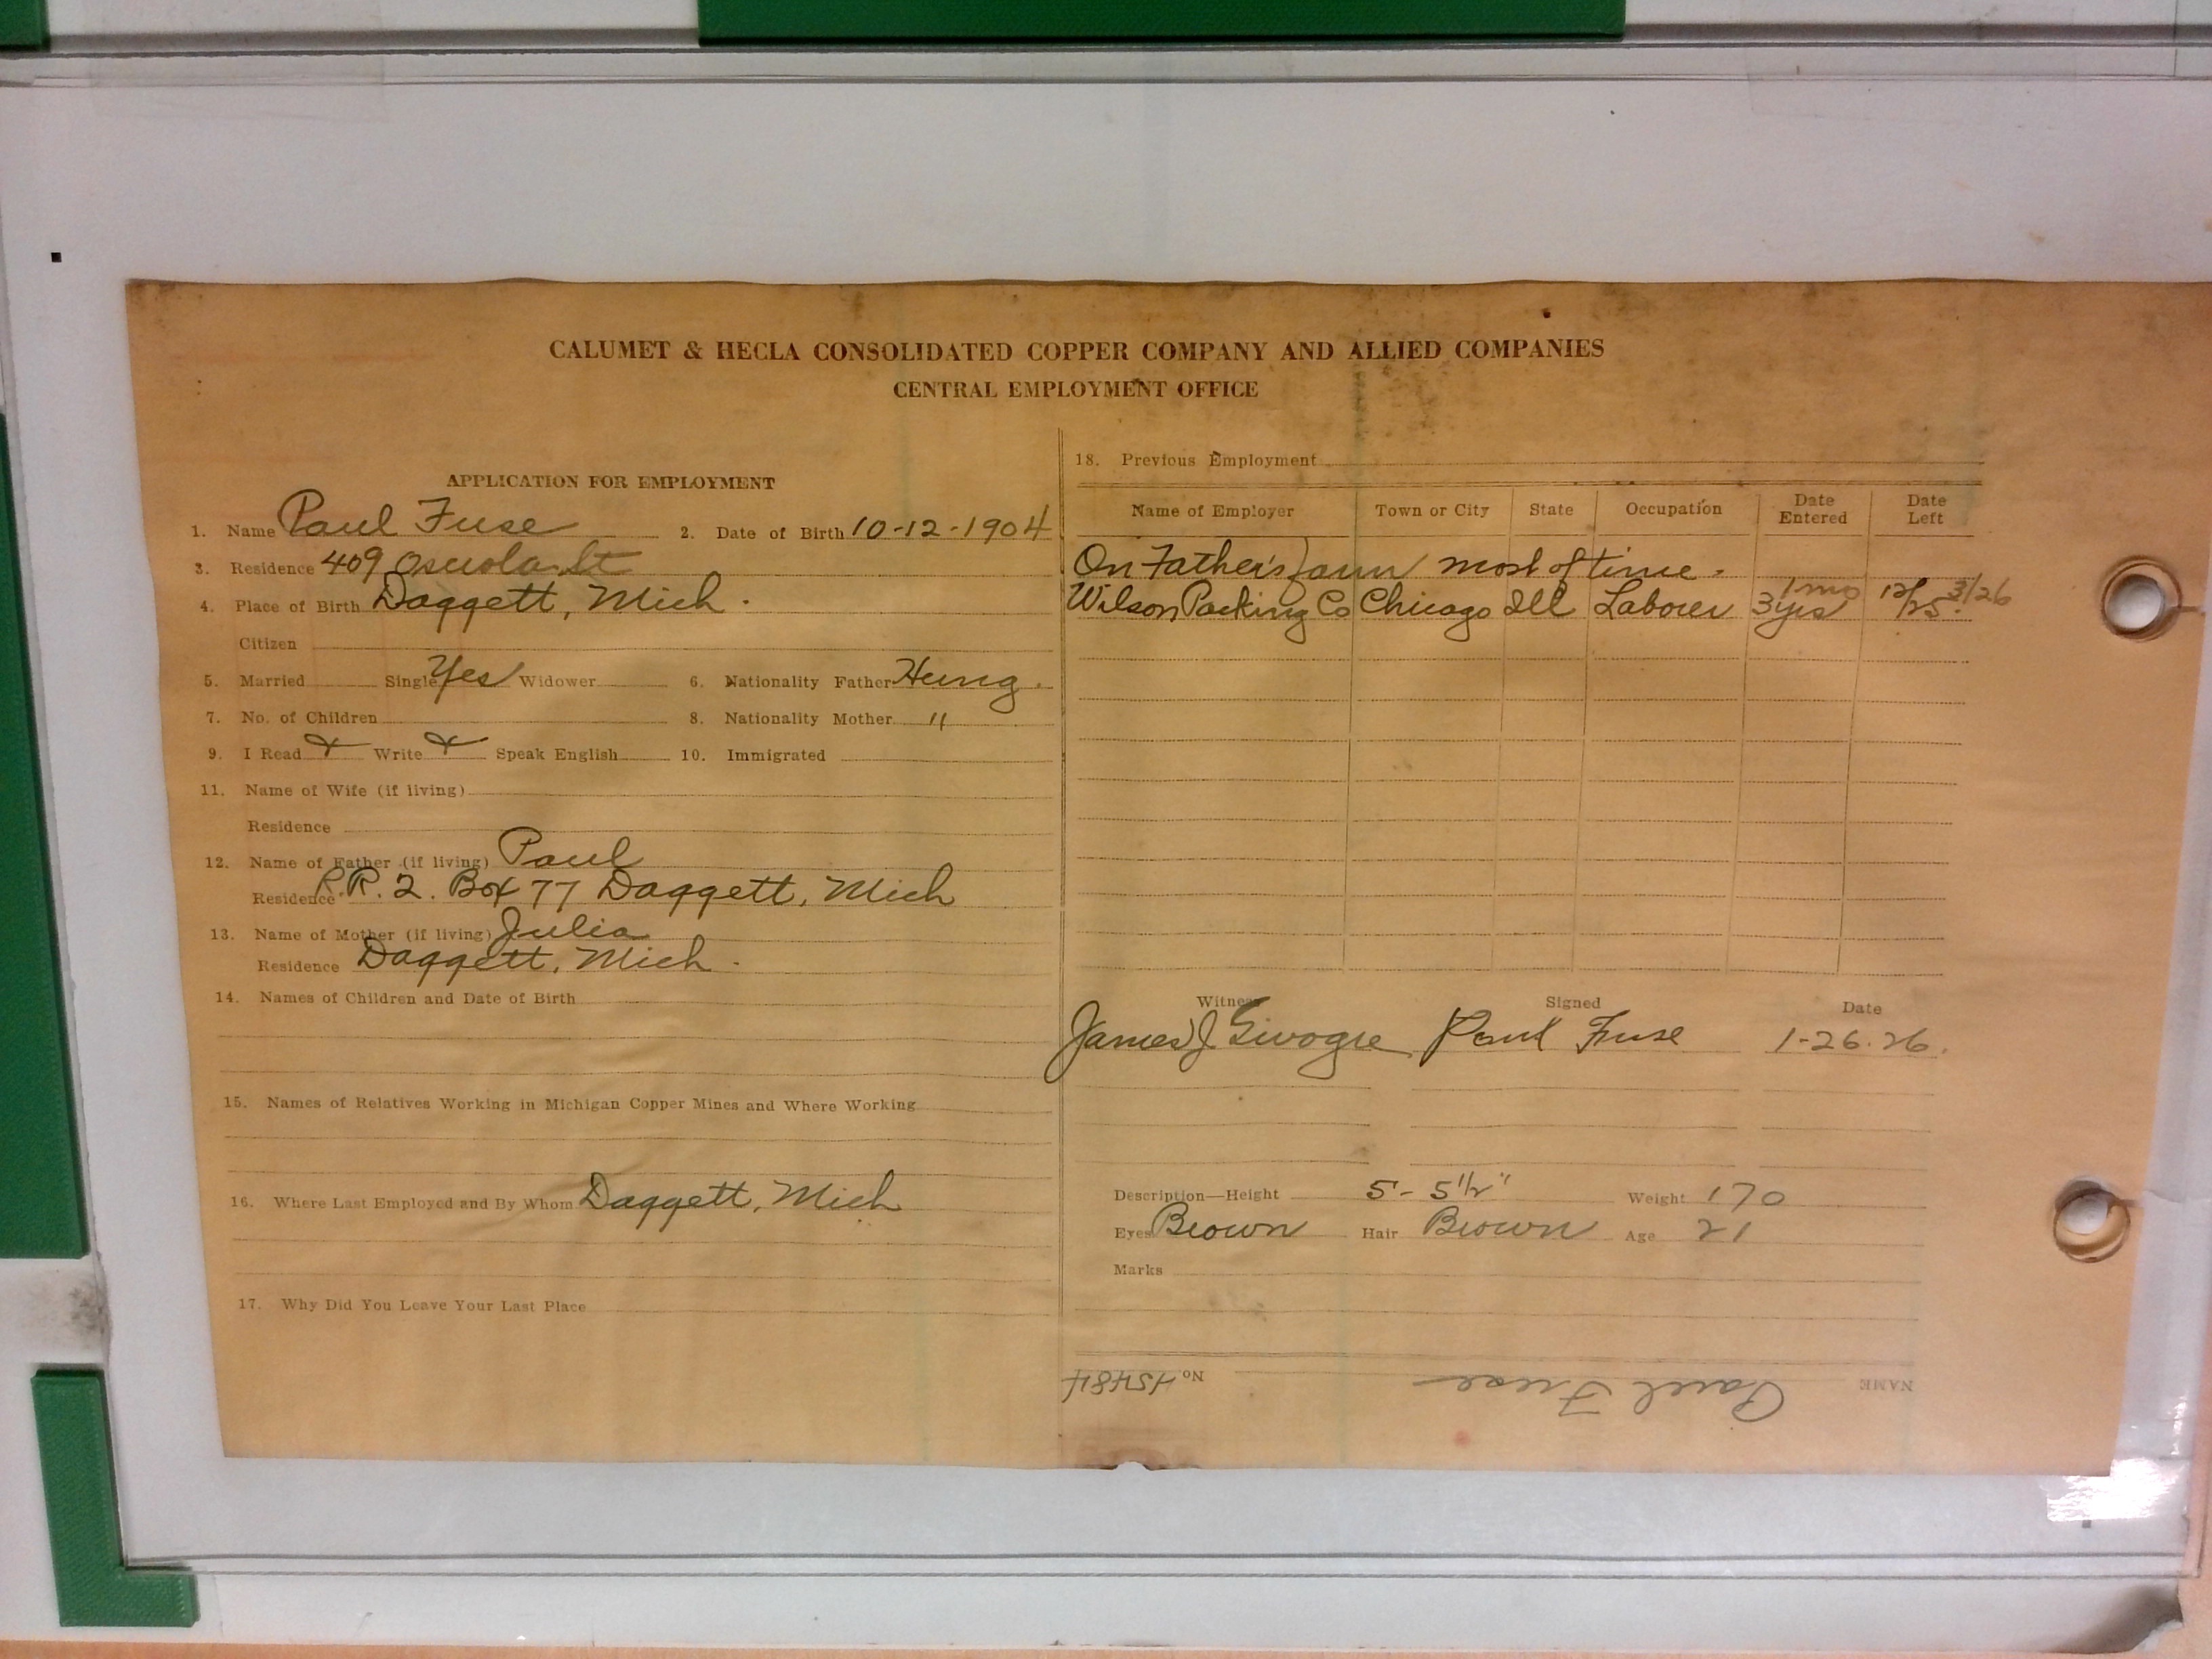 CALUMET & HECLA CONSOLIDATED COPPER COMPANY AND ALLIED COMPANIES
CENTRAL EMPLOYMENT OFFICE
APPLICATION FOR EMPLOYMENT
1. Name Paul Fuse 2. Date of Birth 10-12-1904
3. Residence 409 Osceola St
4. Place of Birth Daggett, Mich.
Citizen
5. Married Single Yes Widower 6. Nationality Father Hung.
7. No. of Children 8. Nationality Mother "
9. I Read Write Speak English 10. Immigrated
11. Name of Wife (if living)
Residence
12. Name of Father (if living) Paul
Residence R.R. 2. Box 77 Daggett, Mich
13. Name of Mother (if living) Julia
Residence Daggett, Mich.
14. Names of Children and Date of Birth
15. Names of Relatives Working in Michigan Copper Mines and Where Working
16. Where Last Employed and By Whom Daggett, Mich
17. Why Did You Leave Your Last Place
18. Previous Employment
Name of Employer Town or City State Occupation Date Entered Date Left
On Father's farm most of time.
Wilson Packing Co Chicago Ill Laborer 3 yrs 1 mo 12/25 3/26
Witness Signed Date
James J Paul Fuse 1-26-26.
Description—Height 5-5 1/2" Weight 170
Eyes Brown Hair Brown Age 21
Marks
NAME Paul Fuse No.